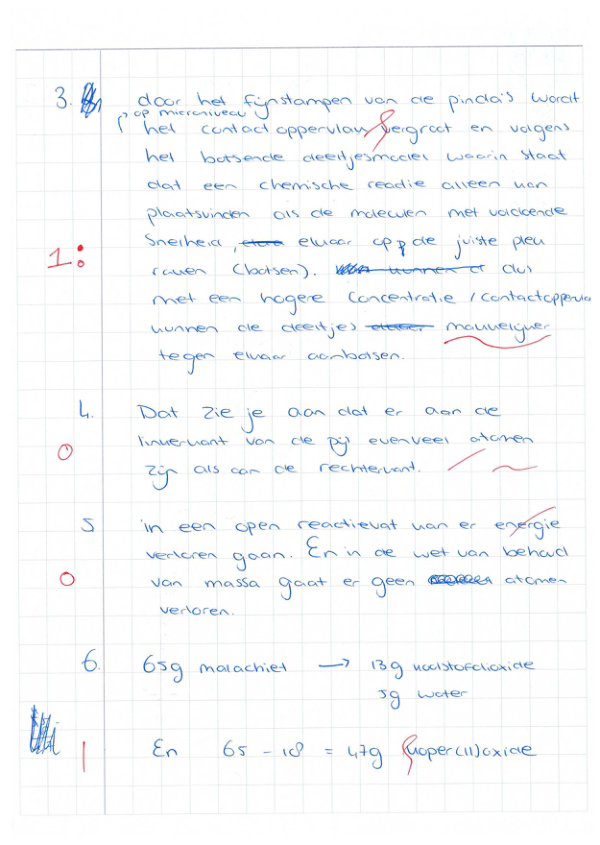 3. door het fijnstampen van de pinda's wordt
op microniveau
het contactoppervlak vergroot en volgens
het botsende deeltjesmodel waarin staat
dat een chemische reactie alleen kan
plaatsvinden als de moleculen met voldoende
snelheid, elkaar op de juiste plek
1: raken (botsen). dus
met een hogere concentratie / contactoppervla
kunnen de deeltjes makkelijker
tegen elkaar aanbotsen.
4. Dat zie je aan dat er aan de
linkerkant van de pijl evenveel atomen
0 zijn als aan de rechterkant.
5 in een open reactievat kan er energie
verloren gaan. En in de wet van behoud
0 van massa gaat er geen atomen
verloren.
6. 65g malachiet → 13g koolstofdioxide
5g water
1 En 65 - 18 = 47g koper(II)oxide